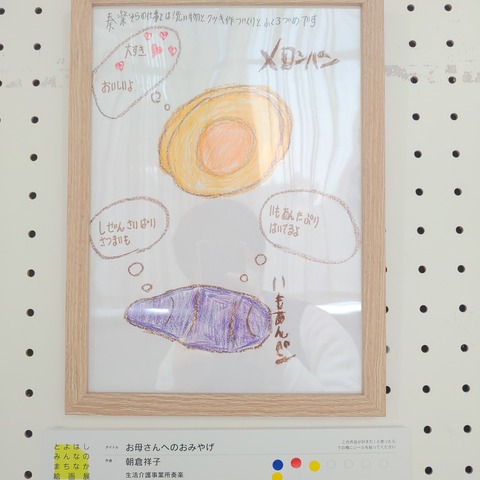 奏楽からの仕事は洗い物とクッキ作づくりとふくろづめです
大すき
おいしいよ
メロンパン
しぜんさいばい
さつまいも
いもあんたっぷり
はいてるよ
いもあんぱん
しなのはなよと
なかまちんみ
展画絵
タイトル
お母さんへのおみやげ
作者
朝倉祥子
生活介護事業所奏楽
この作品が好きだ!と思ったら
下の欄にシールを貼ってください